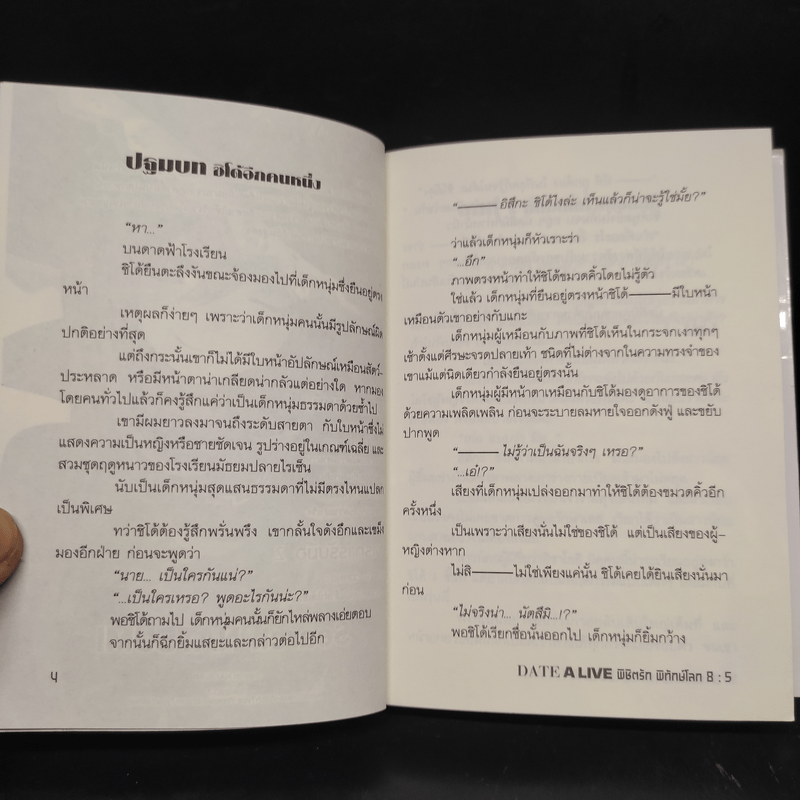 ปฐมบท ชิโด้อีกคนหนึ่ง
“หา...”
บนดาดฟ้าโรงเรียน
ชิโด้ยืนตะลึงงันขณะจ้องมองไปที่เด็กหนุ่มซึ่งยืนอยู่ตรง
หน้า
เหตุผลก็ง่ายๆ เพราะว่าเด็กหนุ่มคนนั้นมีรูปลักษณ์ผิด
ปกติอย่างที่สุด
แต่ถึงกระนั้นเขาก็ไม่ได้มีใบหน้าอัปลักษณ์เหมือนสัตว์-
ประหลาด หรือมีหน้าตาน่าเกลียดน่ากลัวแต่อย่างใด หากมอง
โดยคนทั่วไปแล้วก็คงรู้สึกแค่ว่าเป็นเด็กหนุ่มธรรมดาด้วยซ้ำไป
เขามีผมยาวลงมาจนถึงระดับสายตา กับใบหน้าซึ่งไม่
แสดงความเป็นหญิงหรือชายชัดเจน รูปร่างอยู่ในเกณฑ์เฉลี่ย และ
สวมชุดฤดูหนาวของโรงเรียนมัธยมปลายไรเซ็น
นับเป็นเด็กหนุ่มสุดแสนธรรมดาที่ไม่มีตรงไหนแปลก
เป็นพิเศษ
ทว่าชิโด้ต้องรู้สึกพรั่นพรึง เขากลั้นใจดังอึกและเขม็ง
มองอีกฝ่าย ก่อนจะพูดว่า
“นาย... เป็นใครกันแน่?”
“...เป็นใครเหรอ? พูดอะไรกันน่ะ?”
พอชิโด้ถามไป เด็กหนุ่มคนนั้นก็ยักไหล่พลางเอ่ยตอบ
จากนั้นก็ฉีกยิ้มแสยะและกล่าวต่อไปอีก
4
“——— อิสึกะ ชิโด้ไงล่ะ เห็นแล้วก็น่าจะรู้ใช่มั้ย?”
ว่าแล้วเด็กหนุ่มก็หัวเราะร่า
“...อึก”
ภาพตรงหน้าทำให้ชิโด้ขมวดคิ้วโดยไม่รู้ตัว
ใช่แล้ว เด็กหนุ่มที่ยืนอยู่ตรงหน้าชิโด้———มีใบหน้า
เหมือนตัวเขาอย่างกับแกะ
เด็กหนุ่มผู้เหมือนกับภาพที่ชิโด้เห็นในกระจกเงาทุกๆ
เช้าตั้งแต่ศีรษะจรดปลายเท้า ชนิดที่ไม่ต่างจากในความทรงจำของ
เขาแม้แต่นิดเดียวกำลังยืนอยู่ตรงนั้น
เด็กหนุ่มผู้มีหน้าตาเหมือนกับชิโด้มองดูอาการของชิโด้
ด้วยความเพลิดเพลิน ก่อนจะระบายลมหายใจออกดังฟู่ และขยับ
ปากพูด
“——— ไม่รู้ว่าเป็นฉันจริงๆ เหรอ?”
“...เอ๋!?”
เสียงที่เด็กหนุ่มเปล่งออกมาทำให้ชิโด้ต้องขมวดคิ้วอีก
ครั้งหนึ่ง
เป็นเพราะว่าเสียงนั่นไม่ใช่ของชิโด้ แต่เป็นเสียงของผู้-
หญิงต่างหาก
ไม่สิ———ไม่ใช่เพียงแค่นั้น ชิโด้เคยได้ยินเสียงนั่นมา
ก่อน
“ไม่จริงน่า... นัตสึมิ...!?”
พอชิโด้เรียกชื่อนั้นออกไป เด็กหนุ่มก็ยิ้มกว้าง
DATE A LIVE พิชิตรัก พิทักษ์โลก 8 : 5